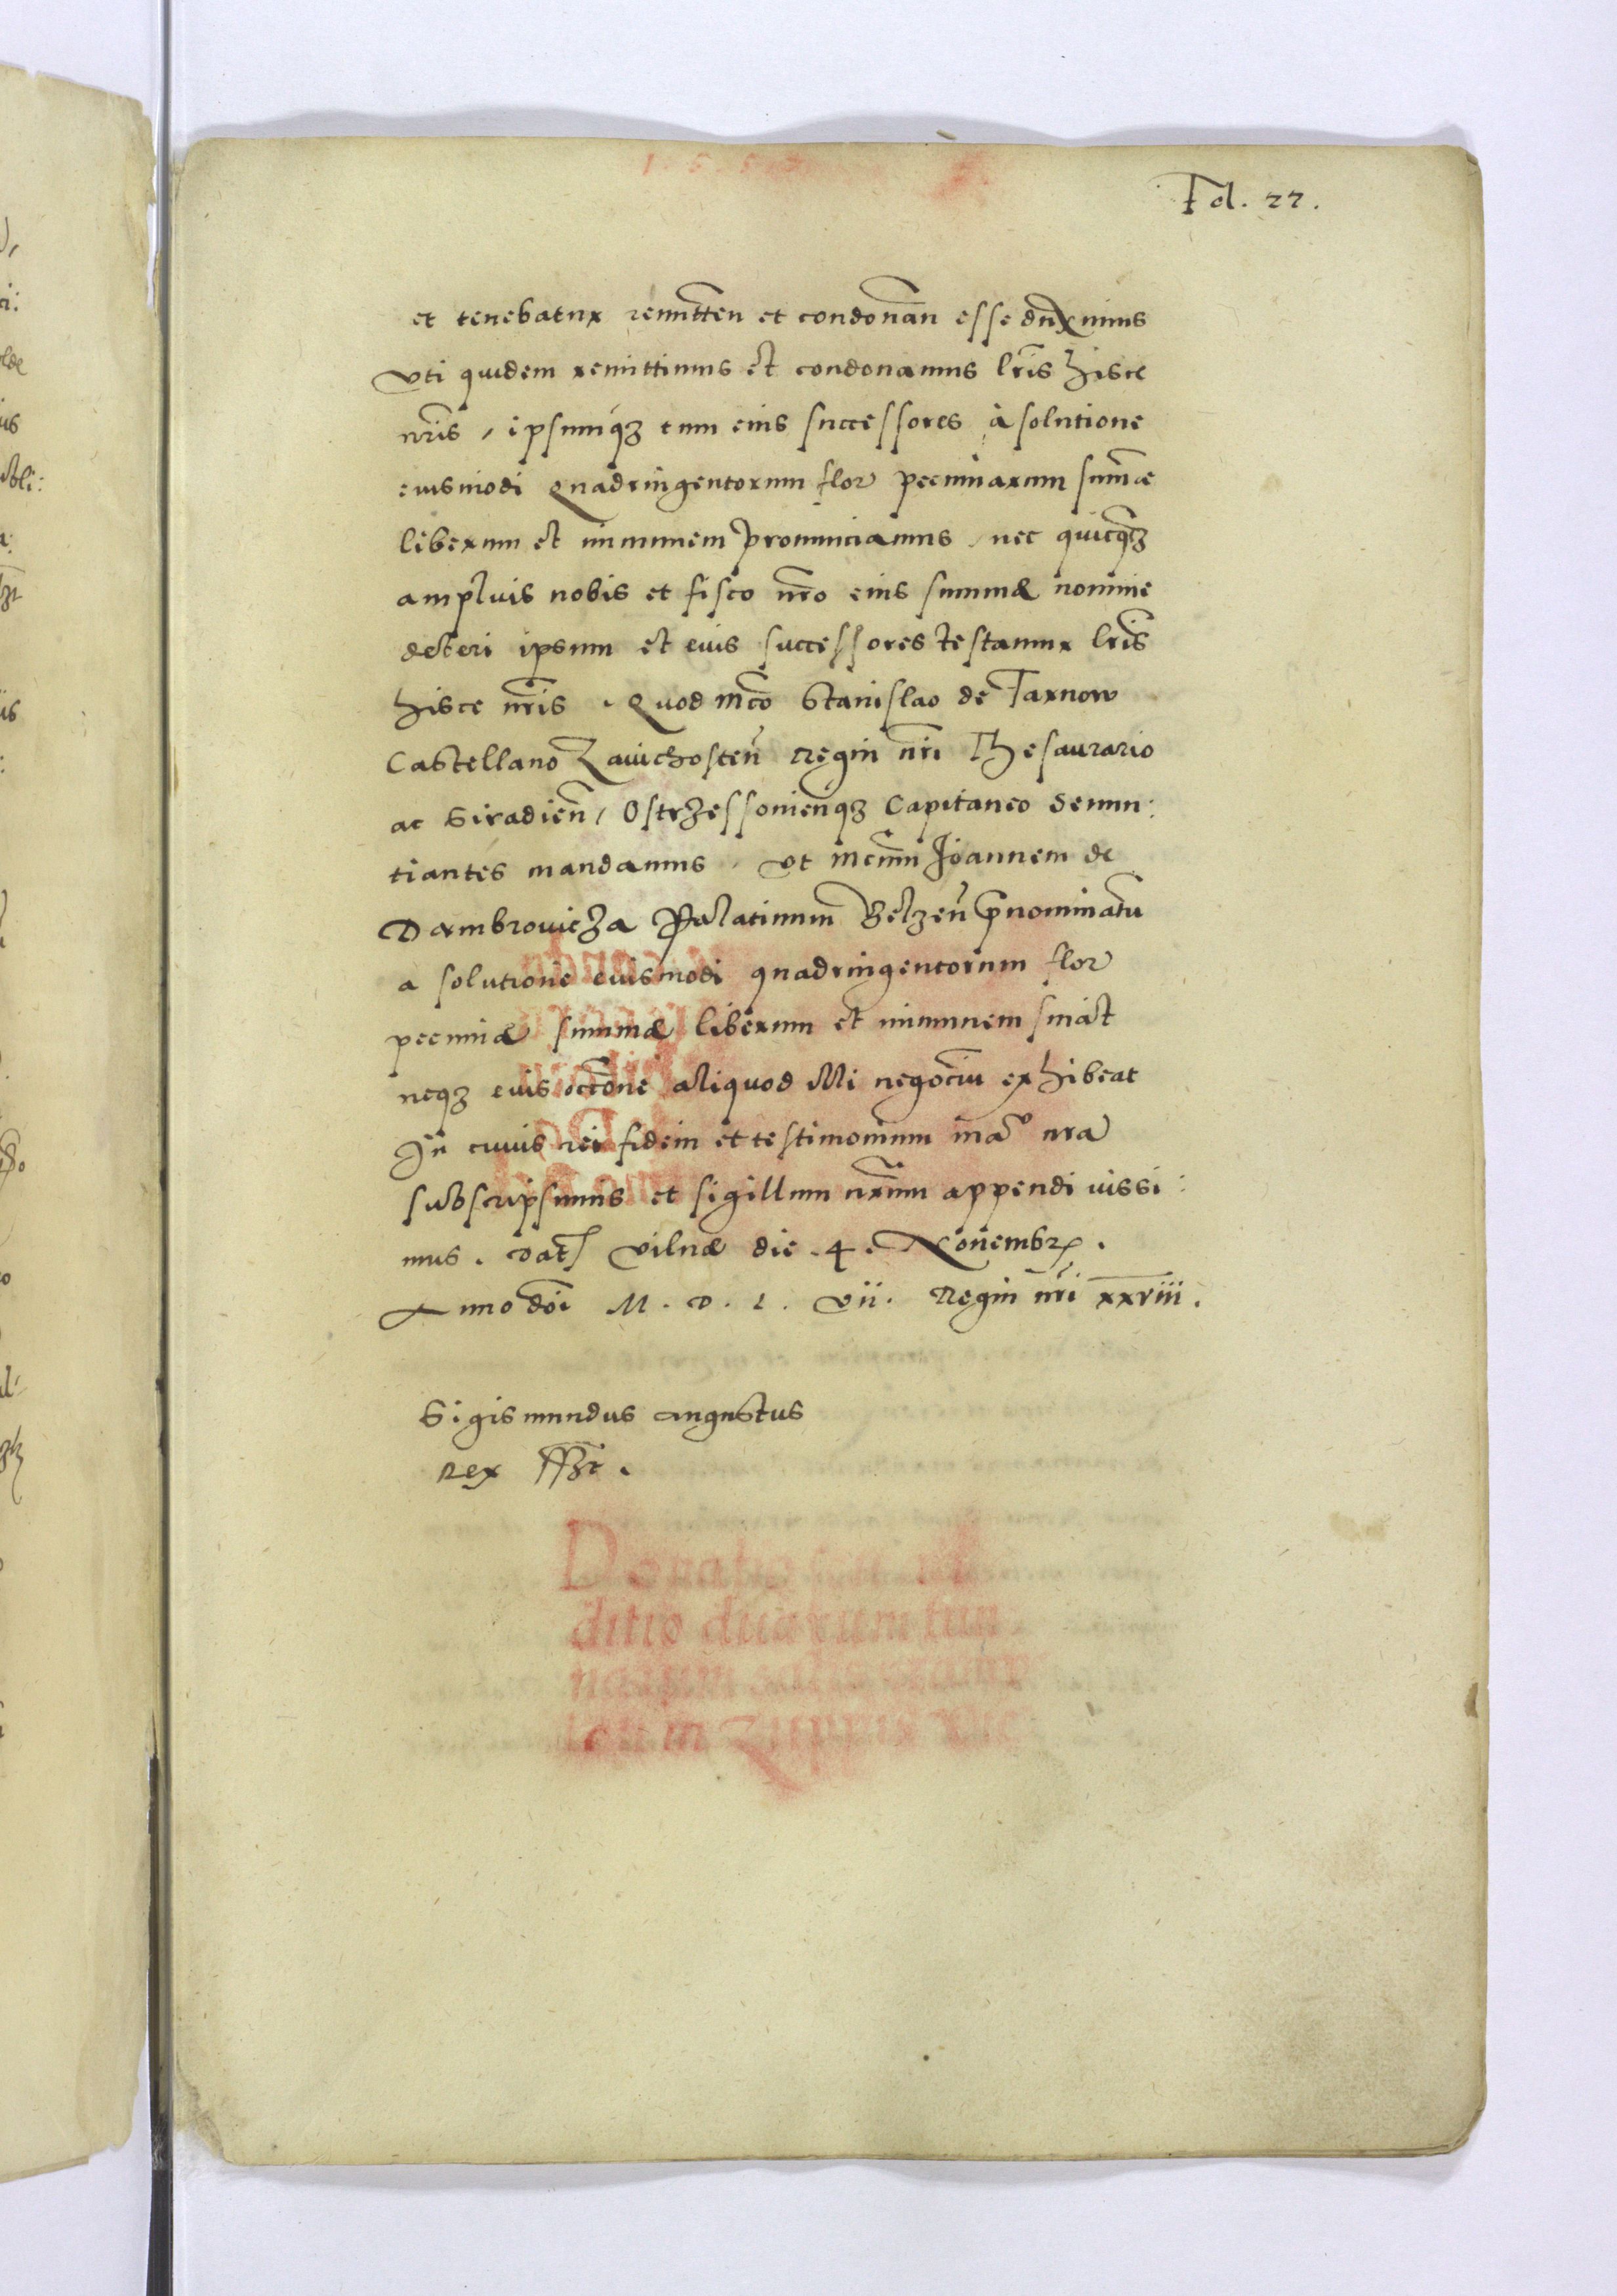 Fol. 22.
et tenebatur remitten̄ et condonan̄ esse duximus
vti quidem remittimus et condonamus lr̄is hisce
nr̄is, ipsumq̨ cum eius successores à solutione
eiusmodi Quadringentorum flor pecuniarum sum̄ae
liberum et immunem pronunciamus, nec quicq̄
ampluis nobis et fisco nr̄o eius summæ nomine
deberi ipsum et eius successores testamur lr̄is
hisce nr̄is. Quod mc̄o Stanislao de Tarnow
Castellano Zauichosten̄ Regni nr̄i Thesaurario
ac Siradien̄, Ostrzessonienq̨ Capitaneo denun:
tiantes mandamus, vt mc̄um Joannem de
Dambrouicza Palatinum Belzen̄ p̄nominatu̅
a solutione euismodi quadringentorum flor
pecuniæ summæ liberum et immunem sinat
neq̨ euis occ̄one aliquod illi negociu̅ exhibeat
In cuuis rei fidem et testimonium manº nr̄a
subscripsimus et sigillum nr̄um appendi iussi:
mus. Dat̄ Vilnæ die .4. Nouembr̄.
Anno do̅i M. D. L. vii. Regni nr̄i xxviii.
Sigismundus augustus
Rex sszt.
Donatio
ditio duarum tun
narum salis
in Zuppis